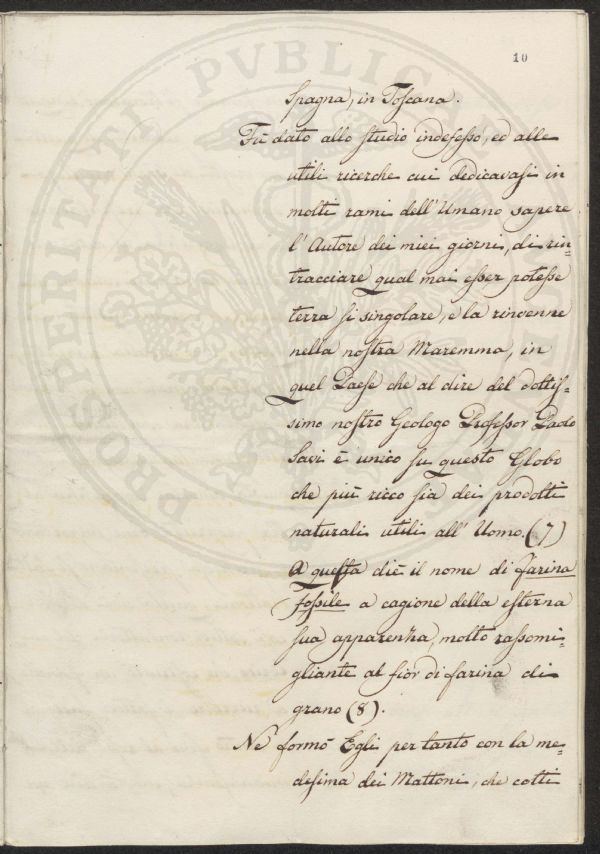 10
Spagna, in Toscana.
Fù dato allo studio indefesso, ed alle
utili ricerche cui dedicavasi in
molti rami dell'Umano sapere
l'Autore dei miei giorni, di rin=
tracciare qual mai esser potesse
terra si singolare, e la rinvenne
nella nostra Maremma, in
quel Paese che al dire del dottis=
simo nostro Geologo Professor Paolo
Savi è unico su questo Globo
che più ricco sia dei prodotti
naturali utili all'Uomo. (7)
A questa diè il nome di farina
fossile a cagione della esterna
sua apparenza, molto rassomi=
gliante al fior di farina di
grano (8).
Ne formò Egli per tanto con la me=
desima dei Mattoni, che cotti
PROSPERITATI PVBLICAE